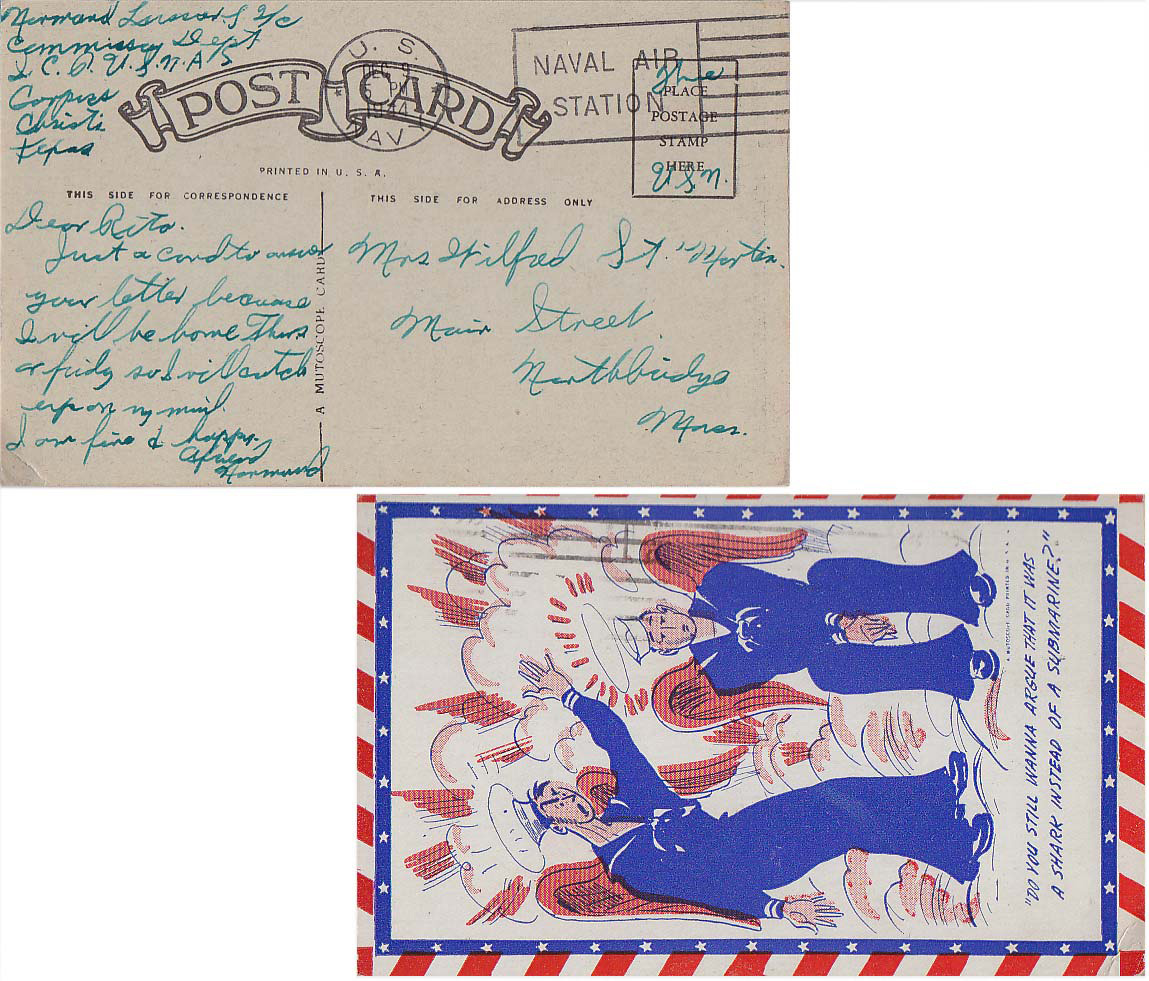 Normand S 2/c
Commissary Dept
U.S.N.A.S
Corpus
Christi
Texas
POST CARD
U. S.
DEC 9
5 PM
1944
NAV
NAVAL AIR
STATION
Free
PLACE
POSTAGE
STAMP
HERE
U.S.N.
PRINTED IN U. S. A.
THIS SIDE FOR CORRESPONDENCE
THIS SIDE FOR ADDRESS ONLY
Dear Rita.
Just a card to answer
your letter because
I will be home Thurs
or fridy so I will catch
up on my mail.
I am fine & happy.
A friend
Normand
A MUTOSCOPE CARD
Mrs Wilfred St. Martin.
Main Street
Northbridge
Mass.
"DO YOU STILL WANNA ARGUE THAT IT WAS
A SHARK INSTEAD OF A SUBMARINE?"
A MUTOSCOPE CARD PRINTED IN U. S. A.